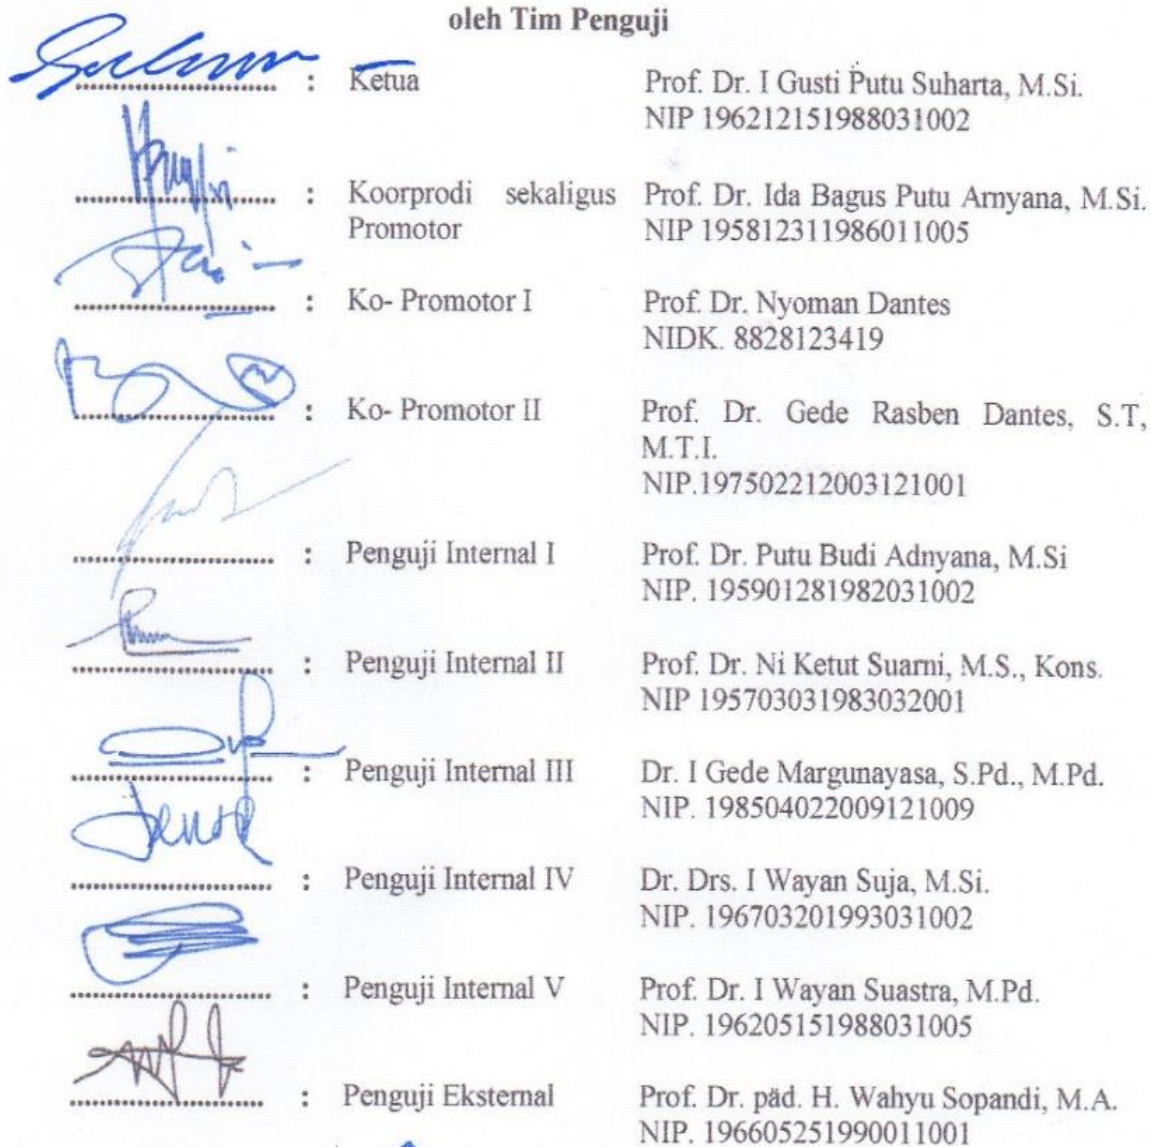 oleh Tim Penguji
: Ketua Prof. Dr. I Gusti Putu Suharta, M.Si.
NIP 196212151988031002
: Koorprodi sekaligus Prof. Dr. Ida Bagus Putu Arnyana, M.Si.
Promotor NIP 195812311986011005
: Ko- Promotor I Prof. Dr. Nyoman Dantes
NIDK. 8828123419
: Ko- Promotor II Prof. Dr. Gede Rasben Dantes, S.T,
M.T.I.
NIP.197502212003121001
: Penguji Internal I Prof. Dr. Putu Budi Adnyana, M.Si
NIP. 195901281982031002
: Penguji Internal II Prof. Dr. Ni Ketut Suarni, M.S., Kons.
NIP 195703031983032001
: Penguji Internal III Dr. I Gede Margunayasa, S.Pd., M.Pd.
NIP. 198504022009121009
: Penguji Internal IV Dr. Drs. I Wayan Suja, M.Si.
NIP. 196703201993031002
: Penguji Internal V Prof. Dr. I Wayan Suastra, M.Pd.
NIP. 196205151988031005
: Penguji Eksternal Prof. Dr. päd. H. Wahyu Sopandi, M.A.
NIP. 196605251990011001